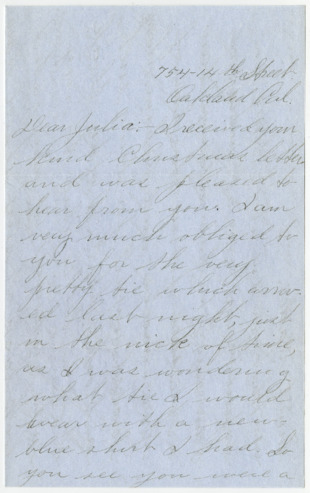 754-14th Street
Oakland Cal.
Dear Julia:- I received your
kind Christmas letter
and was pleased to
hear from you. I am
very much obliged to
you for the very
pretty tie which arriv-
ed last night, just
in the nick of time,
as I was wondering
what tie I would
wear with a new
blue shirt I had. So
you see you were a